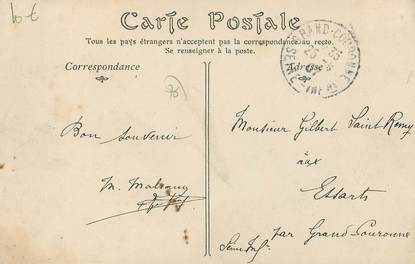 10 €
Carte Postale
Tous les pays étrangers n'acceptent pas la correspondance au recto.
Se renseigner à la poste.
Correspondance
Adresse
GRAND-COURONNE
SEINE-INFRE
76
Bon souvenir
M.
Monsieur Gilbert Saint Remy
aux
Essarts
par Grand-Couronne
Seine Infre